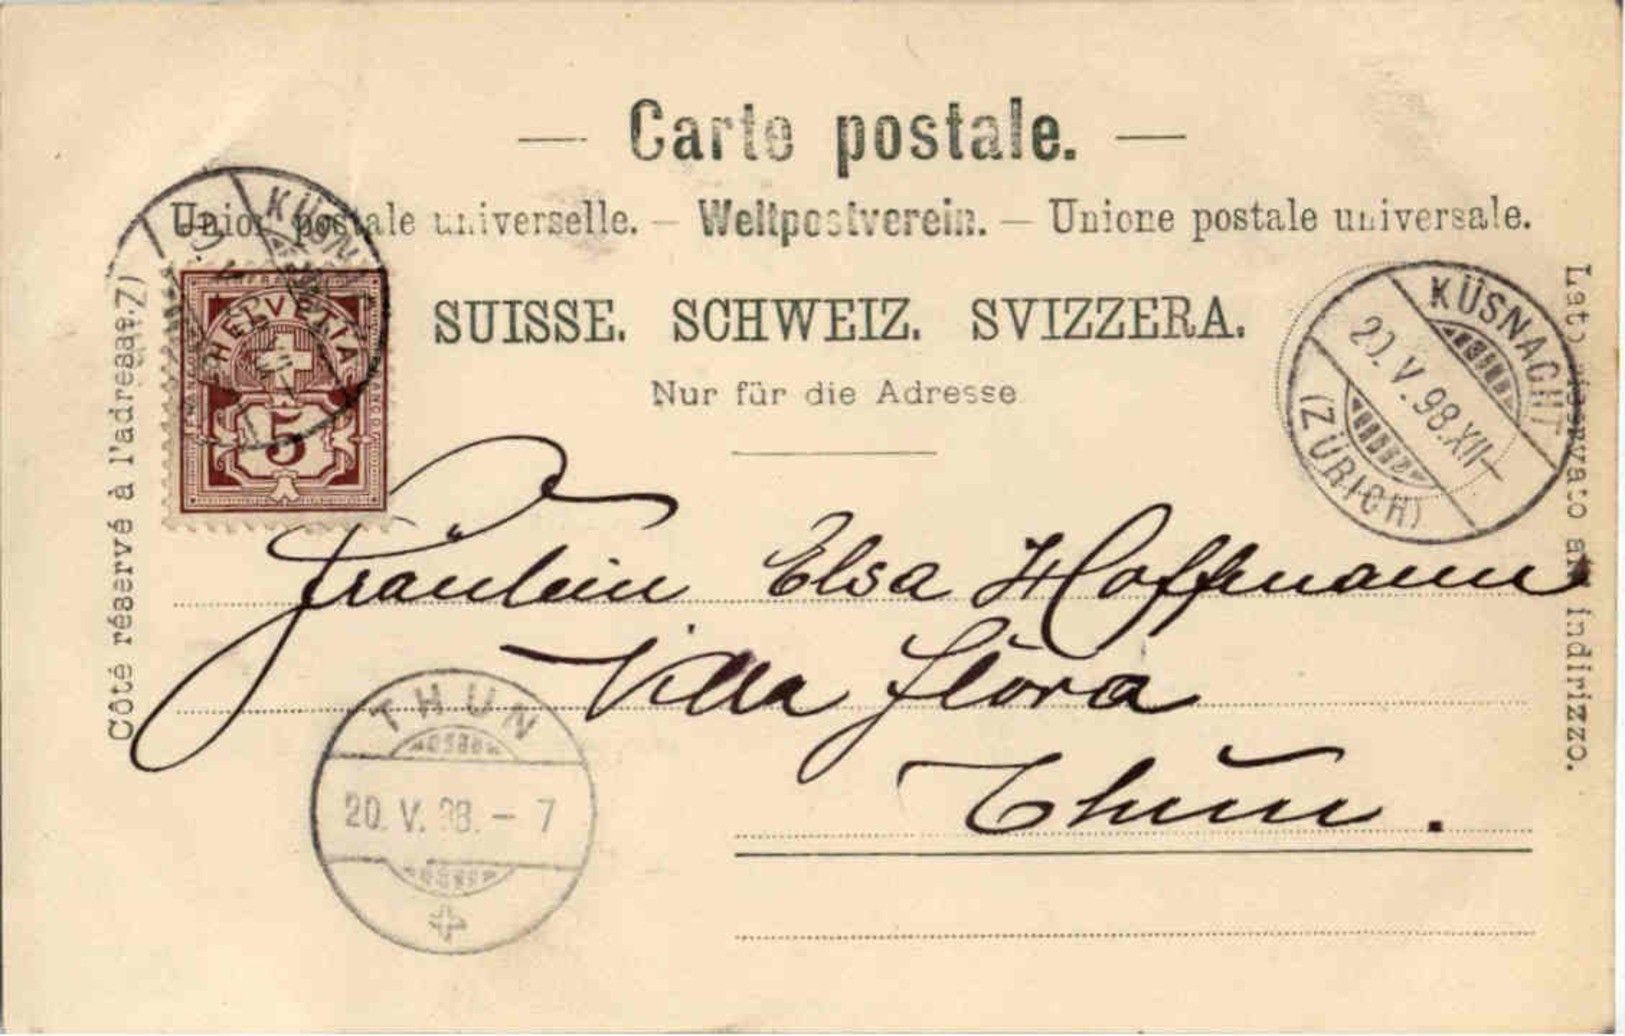 — Carte postale. —
Union postale universelle. — Weltpostverein. — Unione postale universale.
SUISSE. SCHWEIZ. SVIZZERA.
Nur für die Adresse
Côté réservé à l'adresse.
Lato riservato all' indirizzo.
HELVETIA
5
KÜSN
KÜSNACHT
20.V.98.XII–
(ZÜRICH)
Fräulein Elsa Hoffmann
Villa Flora
Thun.
THUN
20. V. 98. – 7